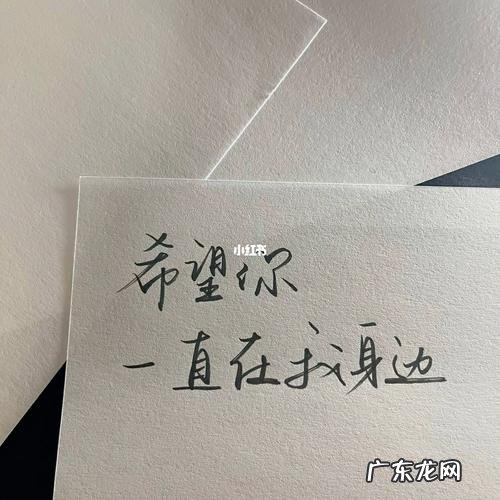 小红书
希望你
一直在我身边
广东龙网